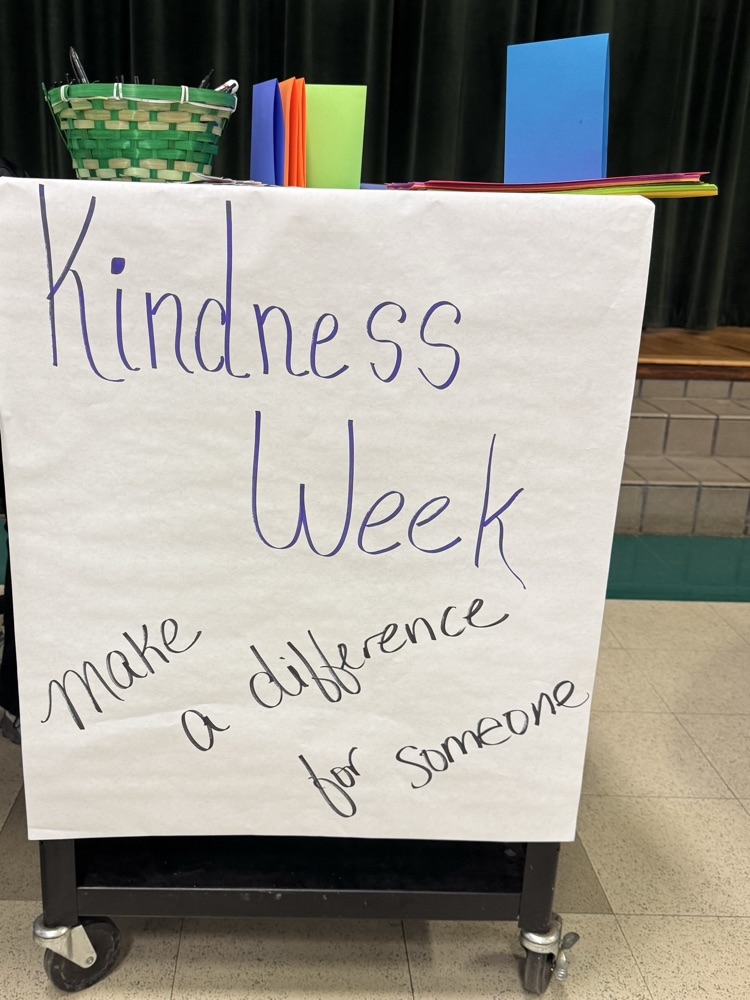 Kindness
Week
make
a difference
for someone